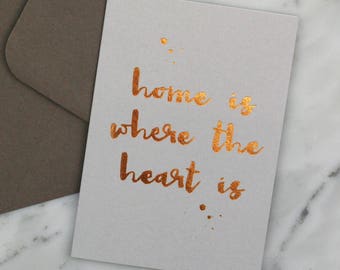 home is
where the
heart is